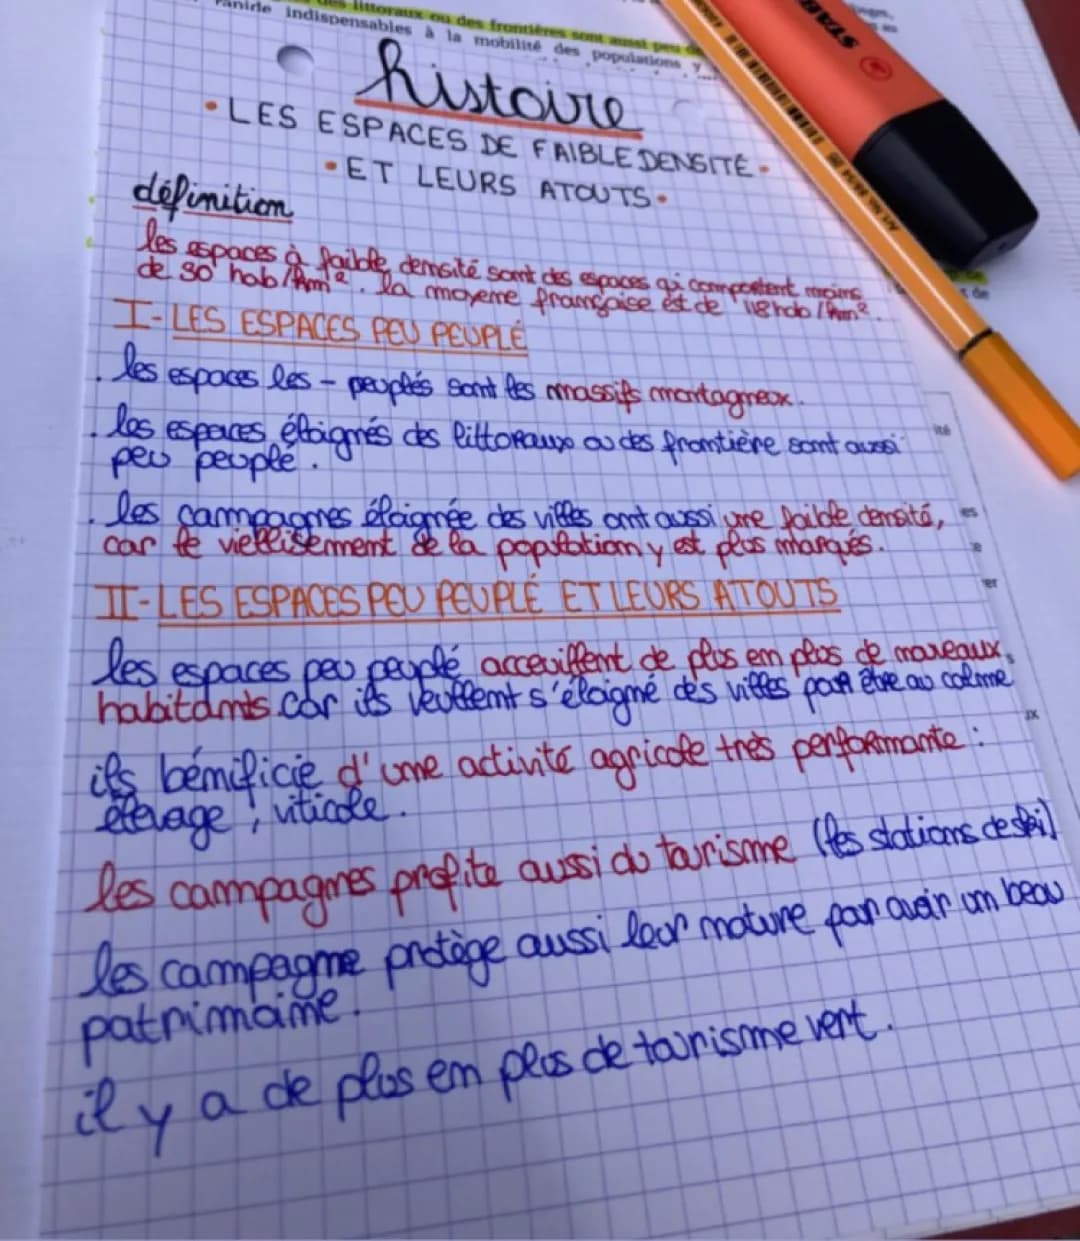 des littoraux ou des frontières sont aussi peu
indispensables à la mobilité des populations y
STAB
histoire
• LES ESPACES DE FAIBLE DENSITÉ •
• ET LEURS ATOUTS •
définition
les espaces à faible densité sont des espaces qi comportent moins
de 30 hab/km². la moyene française est de 118 hab/km².
I- LES ESPACES PEU PEUPLÉ
. les espaces les - peuplés sont les massifs montagneux.
. les espaces éloignés des littoraux ou des frontière sont aussi
peu peuplé.
. les campagnes éloignée des villes ont aussi une faible densité,
car le viellisement de la population y est plus marqués.
II- LES ESPACES PEU PEUPLÉ ET LEURS ATOUTS
les espaces peu peuplé acceuillent de plus en plus de noveaux
habitants car ils veullent s'éloigné des villes pour être au calme
ils bénificie d'une activité agricole très performante :
élevage, viticole.
les campagnes profite aussi du tourisme (les stations de ski)
les campagne protège aussi leur nature par avoir un beau
patrimoine.
il y a de plus en plus de tourisme vert.